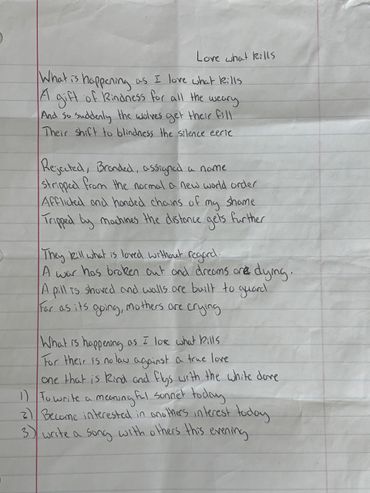 Love what kills
What is happening as I love what kills
A gift of kindness for all the weary
And so suddenly the wolves get their fill
Their shift to blindness the silence eerie
Rejected, Branded, assigned a name
stripped from the normal a new world order
Afflicted and handed chains of my shame
Tripped by machines the distance gets further
They kill what is loved without regard.
A war has broken out and dreams are dying.
A pill is shoved and walls are built to guard
Far as its going, mothers are crying
What is happening as I love what kills
For their is no law against a true love
one that is kind and flys with the white dove
1) To write a meaningful sonnet today
2) Become interested in anothers interest today
3) write a song with others this evening